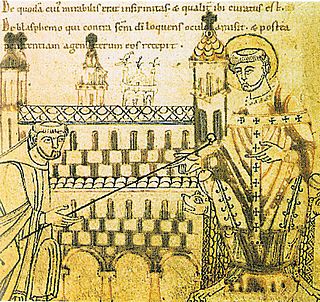 De quodam cui mirabilis erat infirmitas & qualiter ibi curatus est.
De blasphemo qui contra sem di loquens oculum amisit. & postea
penitentiam agentem eos recepit.